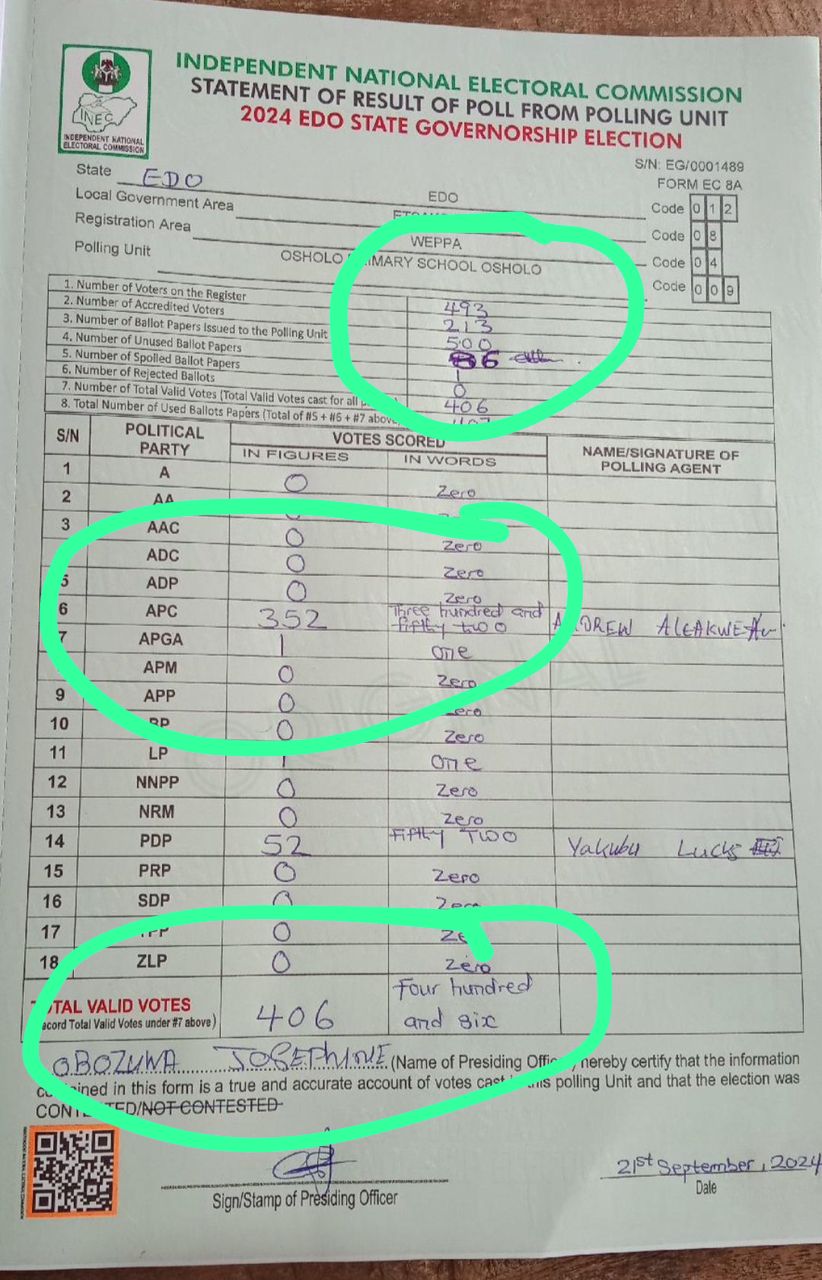 INDEPENDENT NATIONAL ELECTORAL COMMISSION
STATEMENT OF RESULT OF POLL FROM POLLING UNIT
2024 EDO STATE GOVERNORSHIP ELECTION
INEC
INDEPENDENT NATIONAL
ELECTORAL COMMISSION
S/N: EG/0001489
FORM EC 8A
State EDO EDO Code 012
Local Government Area Code 08
Registration Area WEPPA Code 04
Polling Unit OSHOLO PRIMARY SCHOOL OSHOLO Code 009
1. Number of Voters on the Register 493
2. Number of Accredited Voters 213
3. Number of Ballot Papers Issued to the Polling Unit 500
4. Number of Unused Ballot Papers
5. Number of Spoiled Ballot Papers 1
6. Number of Rejected Ballots 0
7. Number of Total Valid Votes (Total Valid Votes cast for all 406
8. Total Number of Used Ballots Papers (Total of #5 + #6 + #7 above
S/N POLITICAL PARTY VOTES SCORED NAME/SIGNATURE OF POLLING AGENT
IN FIGURES IN WORDS
1 A 0 Zero
2 AA
3 AAC 0 Zero
ADC 0 Zero
5 ADP 0 Zero
6 APC 352 Three hundred and fifty two
7 APGA 1 one
APM 0 Zero
9 APP 0 Zero
10 BP 0 Zero
11 LP 1 one
12 NNPP 0 Zero
13 NRM 0 Zero
14 PDP 52 Fifty TWO Yakubu
15 PRP 0 Zero
16 SDP 0 Zero
17 YPP 0
18 ZLP 0 Zero
TOTAL VALID VOTES 406 Four hundred and six
(Record Total Valid Votes under #7 above)
OBOZUWA JOSEPHINE (Name of Presiding Officer) hereby certify that the information
contained in this form is a true and accurate account of votes cast in this polling Unit and that the election was
CONTESTED/NOT CONTESTED
Sign/Stamp of Presiding Officer
21st September, 2024
Date
ORIGINAL